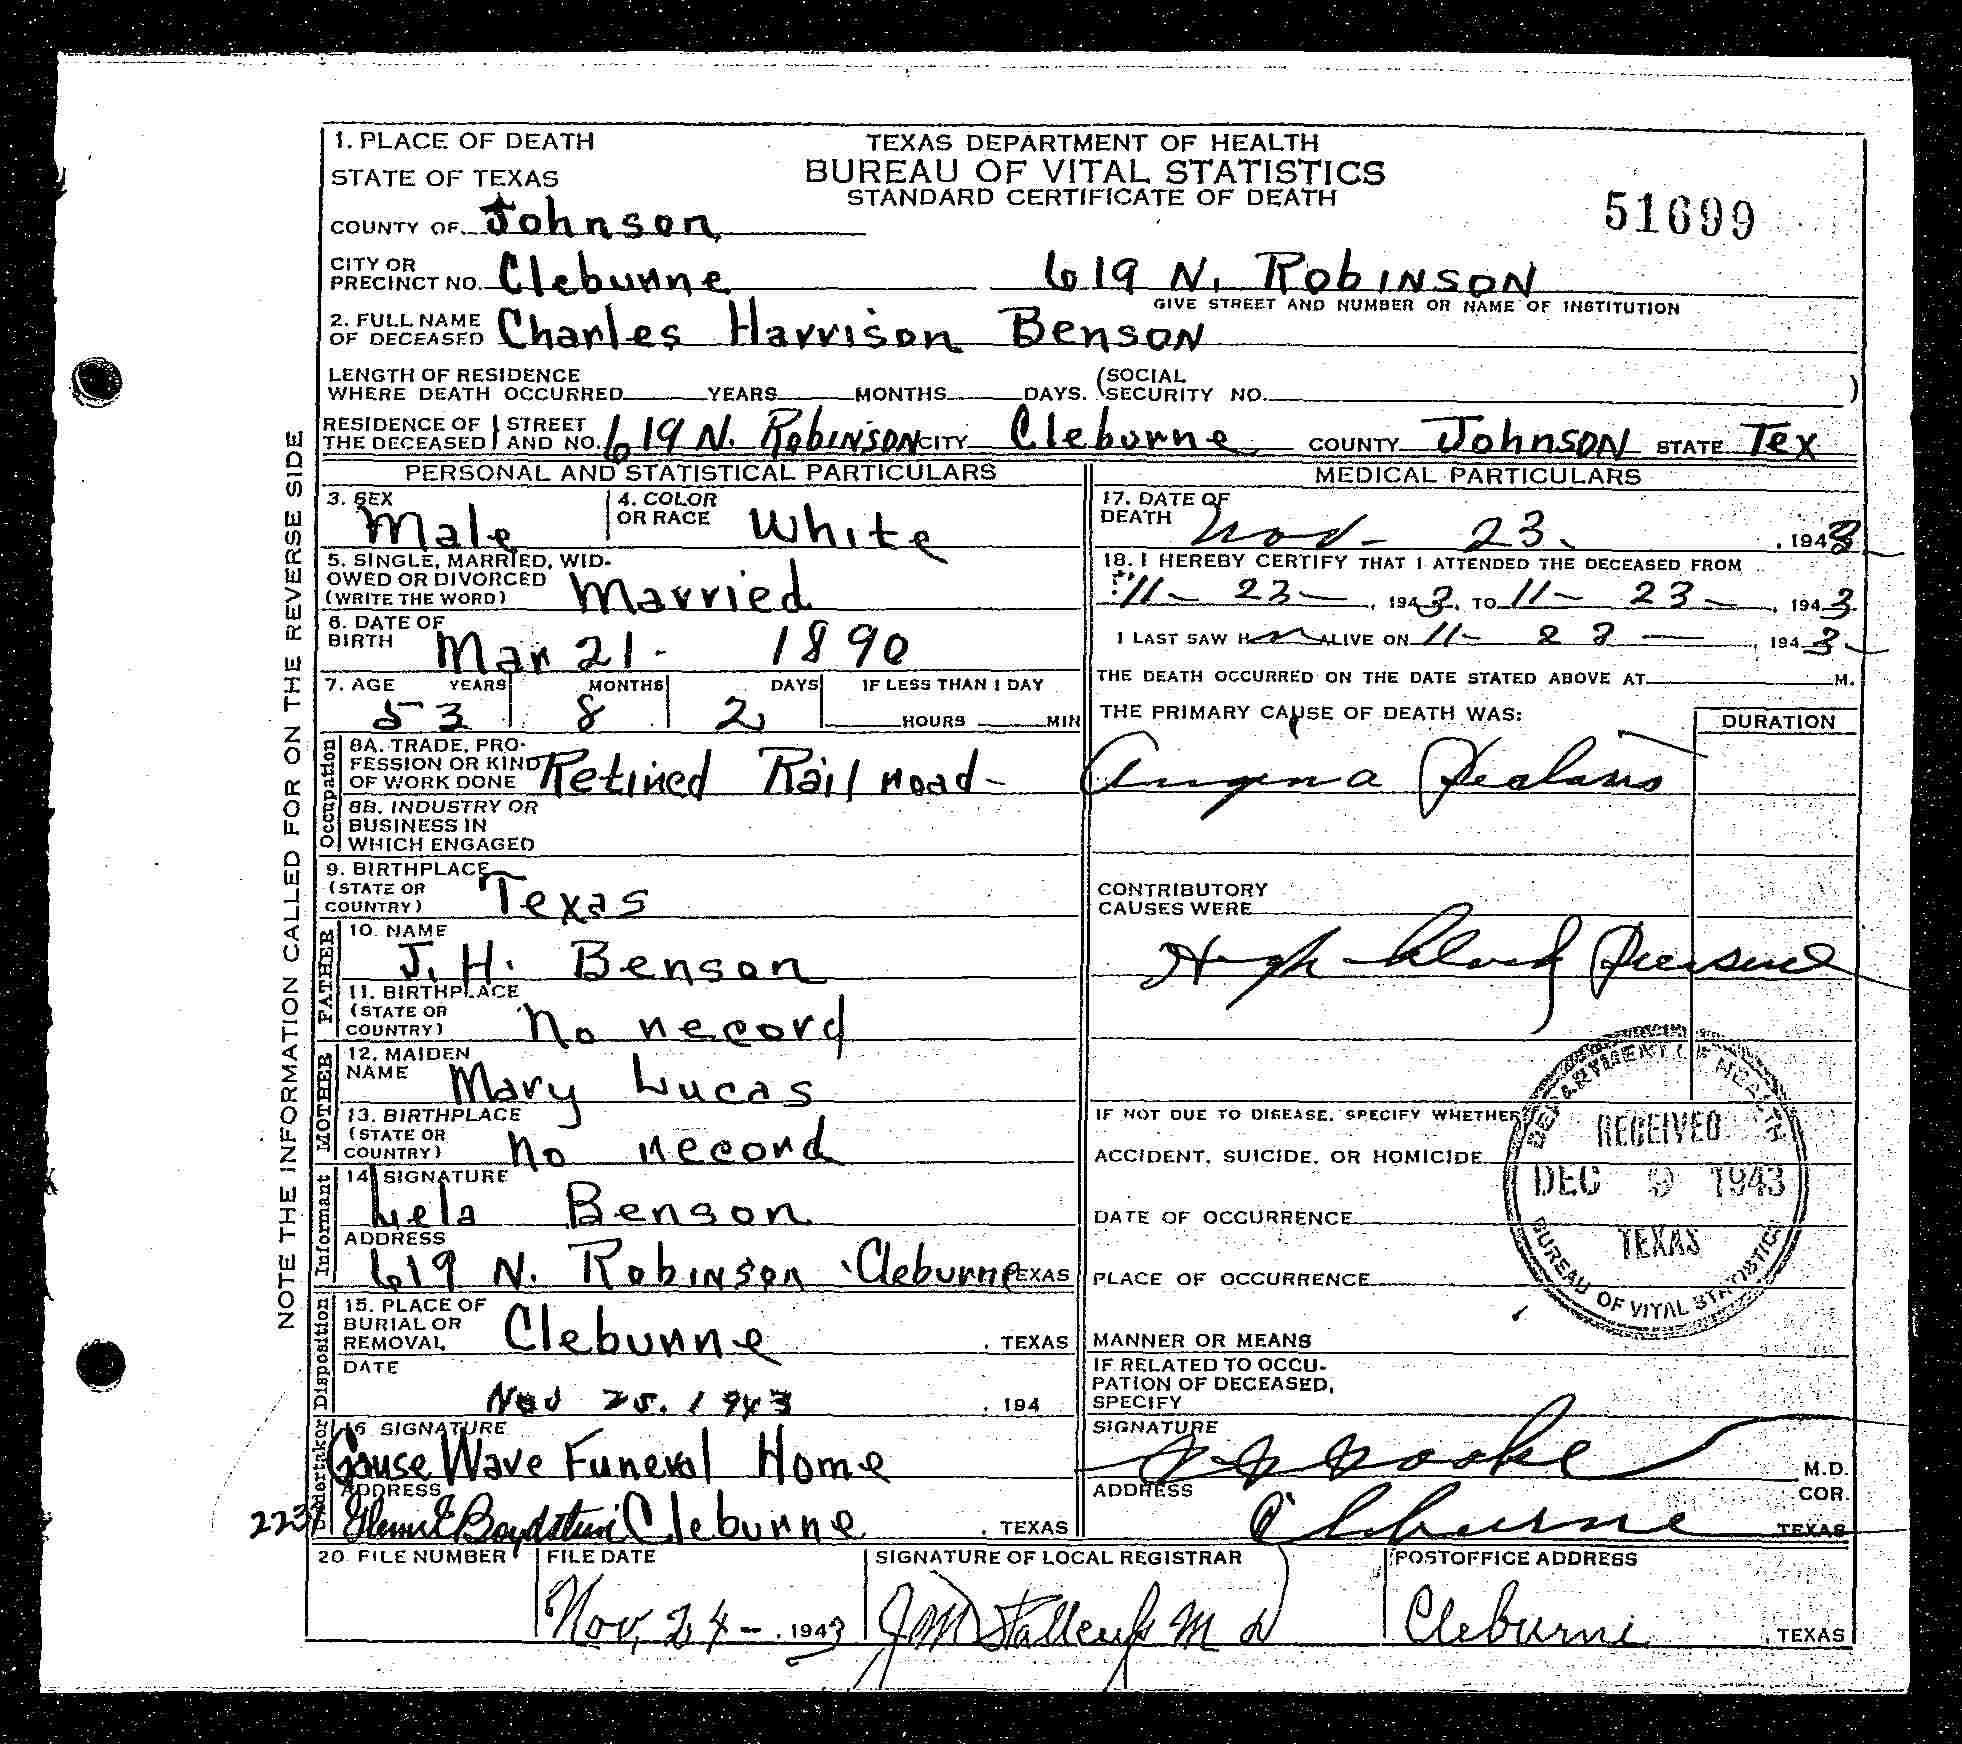 1. PLACE OF DEATH
STATE OF TEXAS
COUNTY OF Johnson
TEXAS DEPARTMENT OF HEALTH
BUREAU OF VITAL STATISTICS
STANDARD CERTIFICATE OF DEATH
51699
CITY OR PRECINCT NO. Cleburne 619 N. Robinson
GIVE STREET AND NUMBER OR NAME OF INSTITUTION
2. FULL NAME OF DECEASED Charles Harrison Benson
LENGTH OF RESIDENCE WHERE DEATH OCCURRED YEARS MONTHS DAYS. (SOCIAL SECURITY NO. )
RESIDENCE OF THE DECEASED STREET AND NO. 619 N. Robinson CITY Cleburne COUNTY Johnson STATE Tex
NOTE THE INFORMATION CALLED FOR ON THE REVERSE SIDE
PERSONAL AND STATISTICAL PARTICULARS
3. SEX Male 4. COLOR OR RACE White
5. SINGLE, MARRIED, WIDOWED OR DIVORCED (WRITE THE WORD) Married
6. DATE OF BIRTH Mar 21 - 1890
7. AGE YEARS MONTHS DAYS IF LESS THAN 1 DAY
53 8 2 HOURS MIN
Occupation
8A. TRADE, PROFESSION OR KIND OF WORK DONE Retired Railroad -
8B. INDUSTRY OR BUSINESS IN WHICH ENGAGED
9. BIRTHPLACE (STATE OR COUNTRY) Texas
FATHER
10. NAME J. H. Benson
11. BIRTHPLACE (STATE OR COUNTRY) No record
MOTHER
12. MAIDEN NAME Mary Lucas
13. BIRTHPLACE (STATE OR COUNTRY) No record
Informant
14. SIGNATURE Lela Benson
ADDRESS 619 N. Robinson Cleburne TEXAS
Disposition
15. PLACE OF BURIAL OR REMOVAL, Cleburne , TEXAS
DATE Nov 25, 1943 , 194
Undertaker
16 SIGNATURE Gause Wave Funeral Home
ADDRESS Cleburne , TEXAS
MEDICAL PARTICULARS
17. DATE OF DEATH Nov - 23. , 1943
18. I HEREBY CERTIFY THAT I ATTENDED THE DECEASED FROM
11 - 23 - , 1943, TO 11 - 23 - , 1943
I LAST SAW H im ALIVE ON 11 - 23 - , 1943
THE DEATH OCCURRED ON THE DATE STATED ABOVE AT M.
THE PRIMARY CAUSE OF DEATH WAS: DURATION
Angina Pectoris
CONTRIBUTORY CAUSES WERE
High blood Pressure
IF NOT DUE TO DISEASE, SPECIFY WHETHER
ACCIDENT, SUICIDE, OR HOMICIDE
DATE OF OCCURRENCE
PLACE OF OCCURRENCE
MANNER OR MEANS
IF RELATED TO OCCUPATION OF DECEASED, SPECIFY
DEPARTMENT OF HEALTH
RECEIVED
DEC 9 1943
TEXAS
BUREAU OF VITAL STATISTICS
SIGNATURE M.D.
COR.
ADDRESS Cleburne TEXAS
20. FILE NUMBER FILE DATE SIGNATURE OF LOCAL REGISTRAR POSTOFFICE ADDRESS
Nov, 24 - , 1943 Cleburne , TEXAS